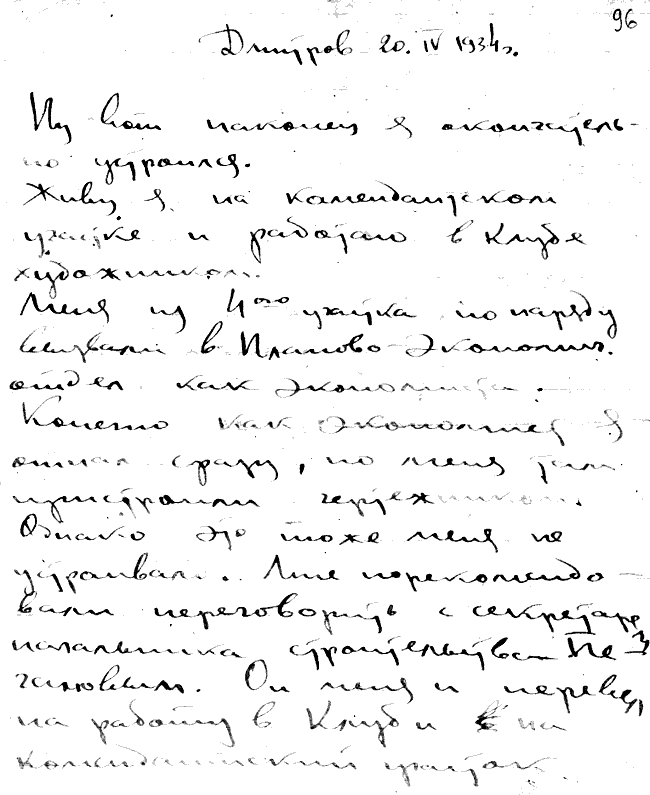 96
Дмитров 20. IV 1934г.
Ну вот наконец я окончатель-
но устроился.
Живу я на комендантском
участке и работаю в Клубе
художником.
Меня из 4ого участка по наряду
вызвали в Планово-Экономич.
отдел как экономиста.
Конечно как экономист я
отпал сразу, но меня там
пристроили чертежником.
Однако это тоже меня не
устраивало. Мне порекомендо-
вали переговорить с секретаре
начальника строительства
Он меня и перевел
на работу в Клуб и на
комендантский участок.